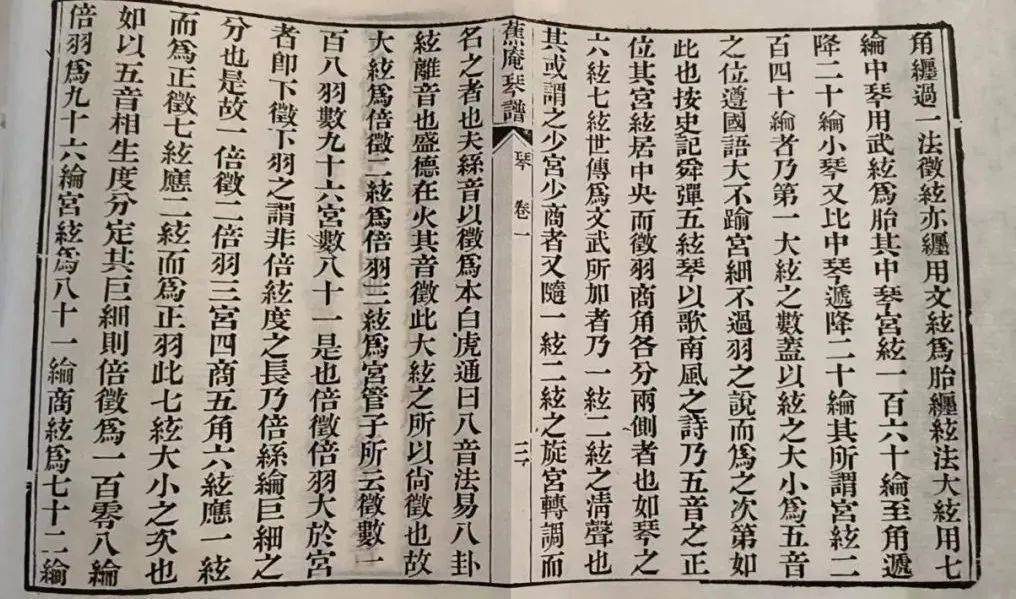 角纏過一法徵絃亦纏用文絃爲胎纏絃法大絃用七
綸中琴用武絃爲胎其中琴宮絃一百六十綸至角遞
降二十綸小琴又比中琴遞降二十綸其所謂宮絃二
百四十綸者乃第一大絃之數蓋以絃之大小爲五音
之位遵國語大不踰宮細不過羽之說而爲之次第如
此也按史記舜彈五絃琴以歌南風之詩乃五音之正
位其宮絃居中央而徵羽商角各分兩側者也如琴之
六絃七絃世傳爲文武所加者乃一絃二絃之淸聲也
其或謂之少宮少商者又隨一絃二絃之旋宮轉調而
蕉庵琴譜
琴
卷一
三
名之者也夫絲音以徵爲本白虎通曰八音法易八卦
絃離音也盛德在火其音徵此大絃之所以尙徵也故
大絃爲倍徵二絃爲倍羽三絃爲宮管子所云徵數一
百八羽數九十六宮數八十一是也倍徵倍羽大於宮
者卽下徵下羽之謂非倍絃度之長乃倍絲綸巨細之
分也是故一倍徵二倍羽三宮四商五角六絃應一絃
而爲正徵七絃應二絃而爲正羽此七絃大小之次也
如以五音相生度分定其巨細則倍徵爲一百零八綸
倍羽爲九十六綸宮絃爲八十一綸商絃爲七十二綸